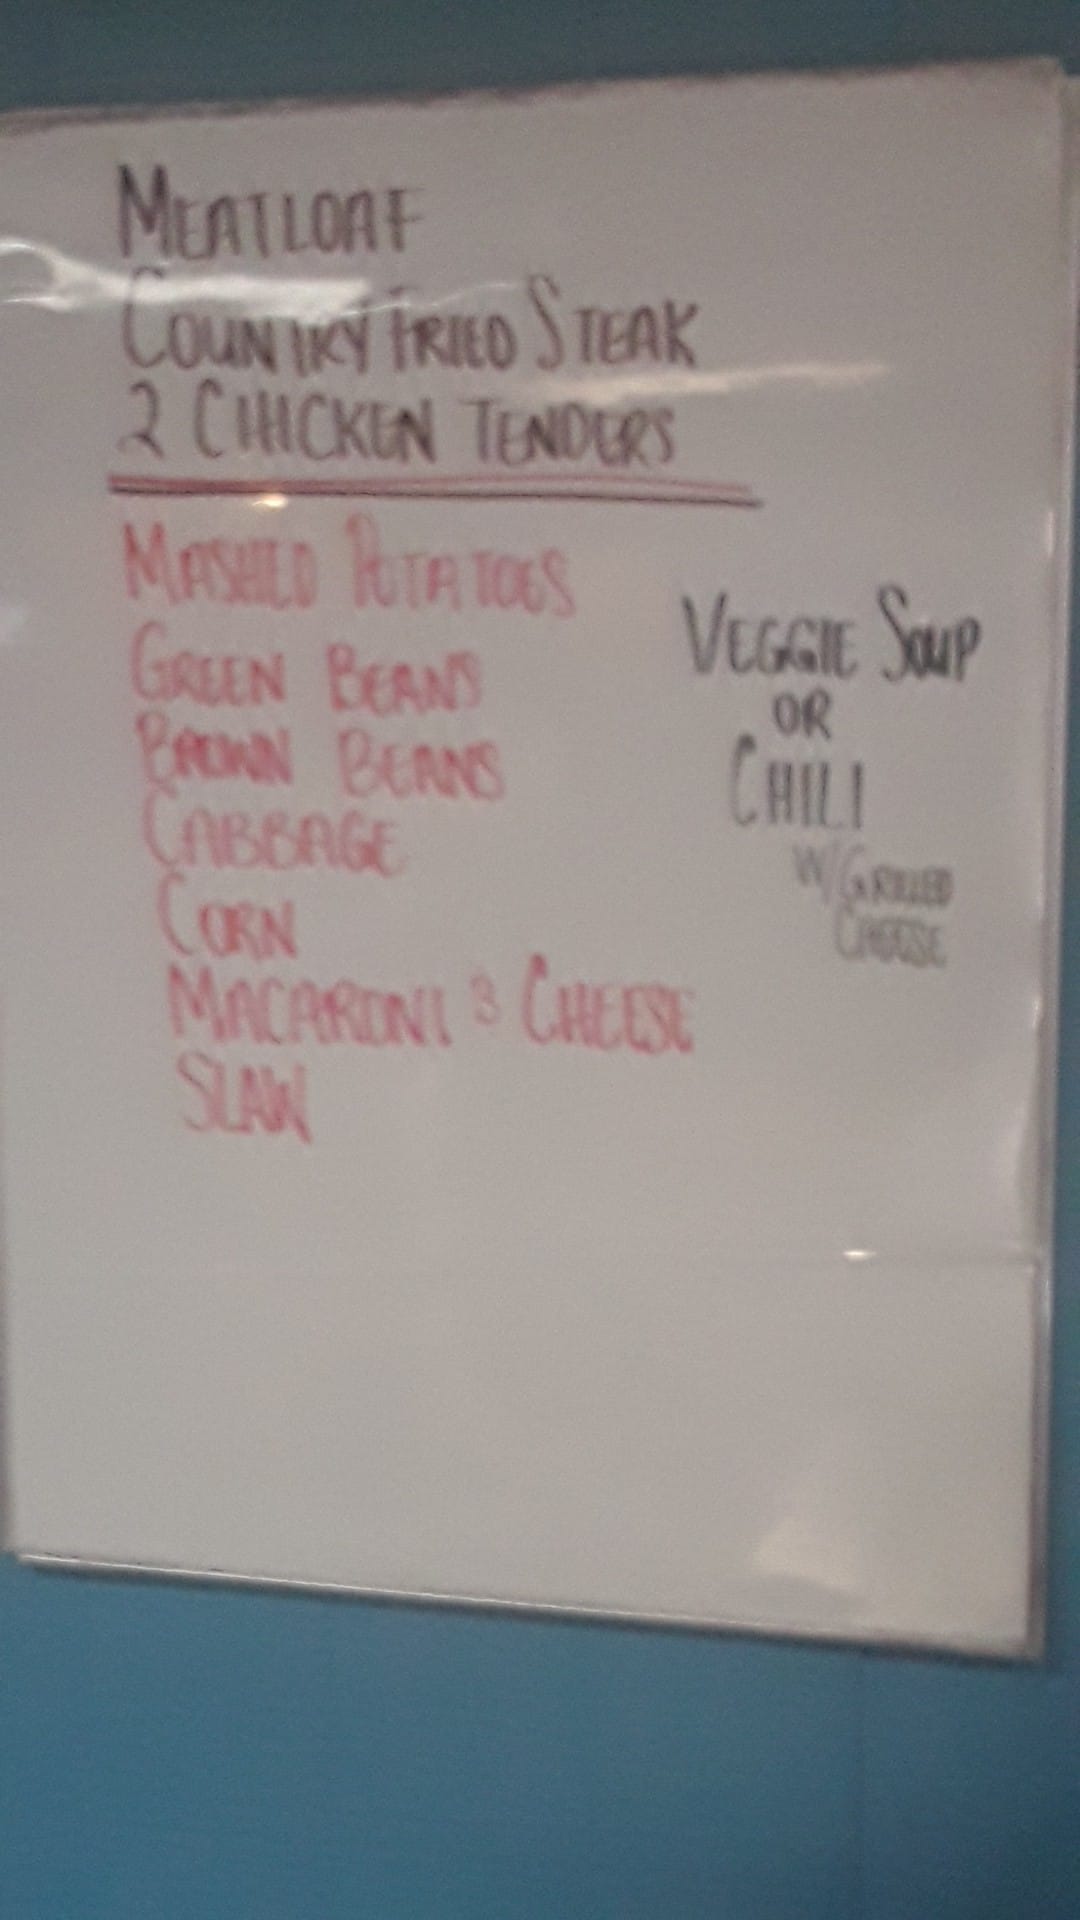 MEATLOAF
COUNTRY FRIED STEAK
2 CHICKEN TENDERS
MASHED POTATOES
GREEN BEANS
BROWN BEANS
CABBAGE
CORN
MACARONI & CHEESE
SLAW
VEGGIE SOUP
OR
CHILI
W/GRILLED
CHEESE